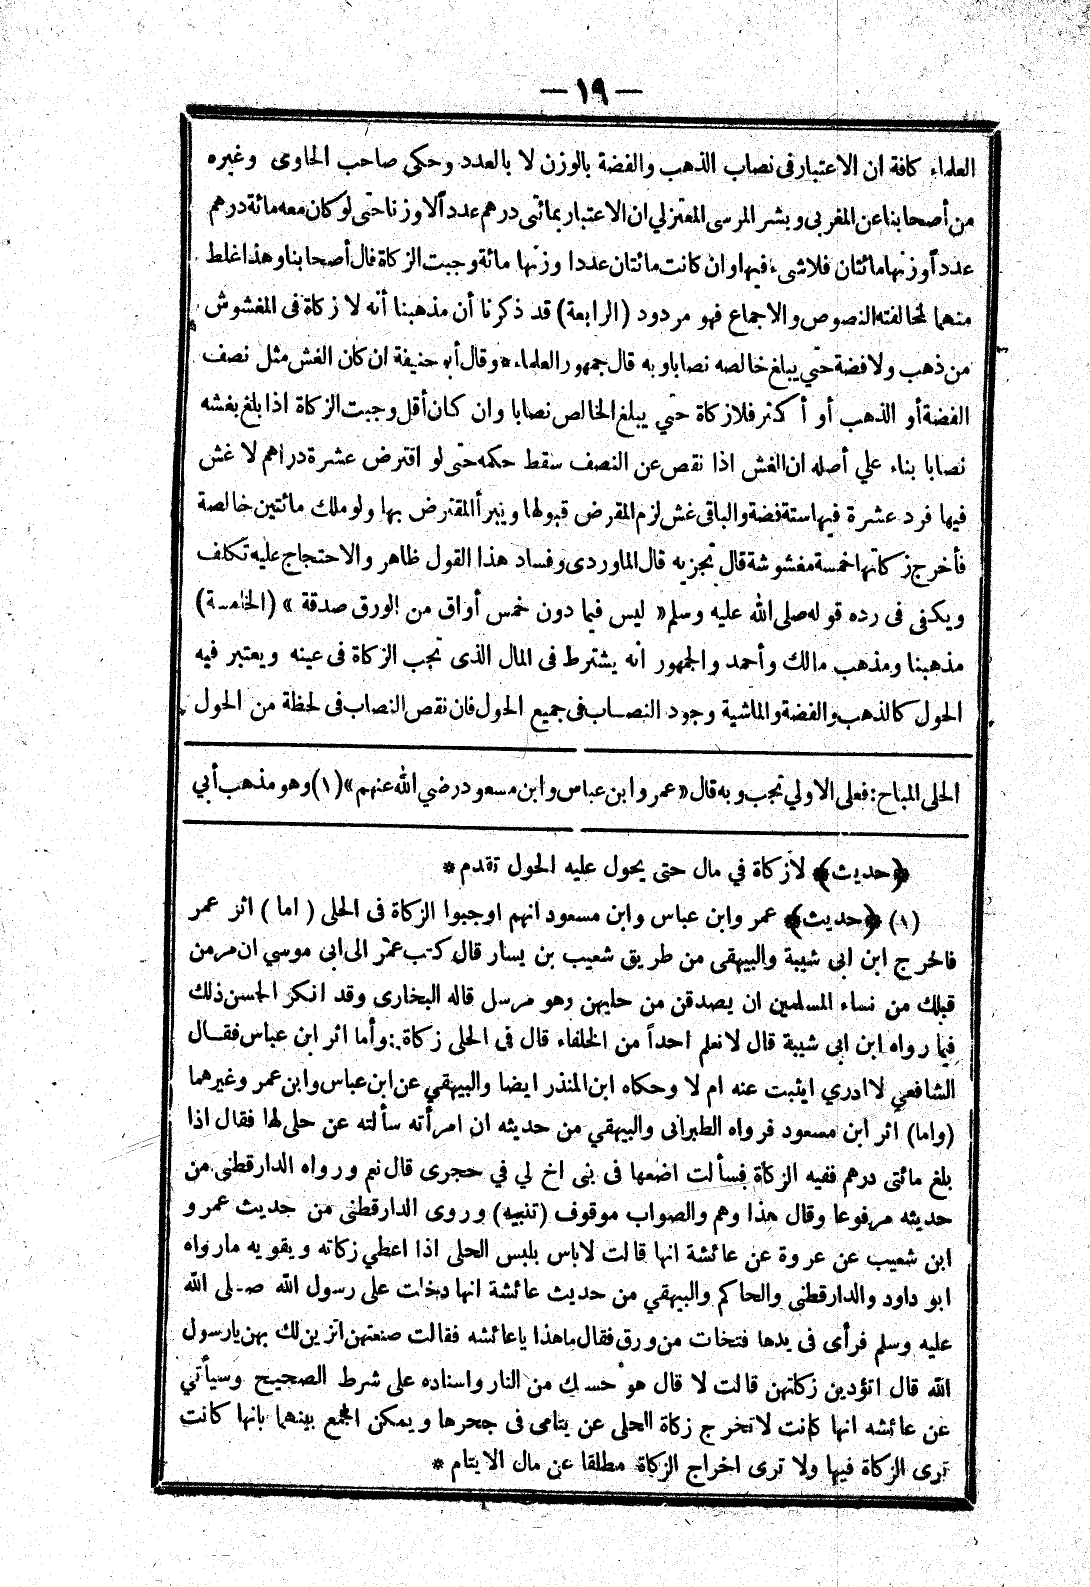 — ١٩ —
العلماء كافة ان الاعتبار في نصاب الذهب والفضة بالوزن لا بالعدد وحكي صاحب الحاوى وغيره
من أصحابنا عن المغربى وبشر المرسى المعتزلي ان الاعتبار بمائتى درهم عدداً لا وزنا حتى لو كان معه مائة درهم
عدداً وزنها مائتان فلا شىء فيها وان كانت مائتان عددا وزنها مائة وجبت الزكاة قال أصحابنا وهذا غلط
منهما لمخالفته النصوص والاجماع فهو مردود (الرابعة) قد ذكرنا أن مذهبنا أنه لا زكاة فى المغشوش
من ذهب ولا فضة حتي يبلغ خالصه نصابا وبه قال جمهور العلماء * وقال أبو حنيفة ان كان الغش مثل نصف
الفضة أو الذهب أو أكثر فلا زكاة حتي يبلغ الخالص نصابا وان كان أقل وجبت الزكاة اذا بلغ بغشه
نصابا بناء علي أصله ان الغش اذا نقص عن النصف سقط حكمه حتى لو اقترض عشرة دراهم لا غش
فيها فرد عشرة فيها ستة فضة والباقى غش لزم المقرض قبولها ويبرأ المقترض بها ولو ملك مائتين خالصة
فأخرج زكاتها خمسة مغشوشة قال تجزيه قال الماوردى وفساد هذا القول ظاهر والاحتجاج عليه تكلف
ويكفى فى رده قوله صلى الله عليه وسلم « ليس فيما دون خمس أواق من الورق صدقة » (الخامسة)
مذهبنا ومذهب مالك وأحمد والجمهور انه يشترط فى المال الذى تجب الزكاة فى عينه ويعتبر فيه
الحول كالذهب والفضة والماشية وجود النصاب فى جميع الحول فان نقص النصاب فى لحظة من الحول
الحلى المباح : فعلى الاولي تجب وبه قال « عمر وابن عباس وابن مسعود رضي الله عنهم » (١) وهو مذهب أبي
﴿حديث﴾ لا زكاة في مال حتى يحول عليه الحول تقدم *
(١) ﴿حديث﴾ عمر وابن عباس وابن مسعود انهم اوجبوا الزكاة فى الحلى ( اما ) اثر عمر
فاخرج ابن ابى شيبة والبيهقى من طريق شعيب بن يسار قال كتب عمر الى ابى موسي ان مر من
قبلك من نساء المسلمين ان يصدقن من حليهن وهو مرسل قاله البخارى وقد انكر الحسن ذلك
فيما رواه ابن ابى شيبة قال لا نعلم احداً من الخلفاء قال فى الحلى زكاة : وأما اثر ابن عباس فقال
الشافعي لا ادري ايثبت عنه ام لا وحكاه ابن المنذر ايضا والبيهقي عن ابن عباس وابن عمر وغيرهما
(واما) اثر ابن مسعود فرواه الطبرانى والبيهقي من حديثه ان امرأته سألته عن حلى لها فقال اذا
بلغ مائتى درهم ففيه الزكاة فسألت اضعها فى بنى اخ لي في حجرى قال نعم ورواه الدارقطنى من
حديثه مرفوعا وقال هذا وهم والصواب موقوف (تنبيه) وروى الدارقطنى من حديث عمرو
ابن شعيب عن عروة عن عائشة انها قالت لا باس بلبس الحلى اذا اعطي زكاته ويقويه ما رواه
ابو داود والدارقطنى والحاكم والبيهقي من حديث عائشة انها دخلت على رسول الله صلى الله
عليه وسلم فرأى فى يدها فتخات من ورق فقال ما هذا يا عائشه فقالت صنعتهن اتزين لك بهن يا رسول
الله قال اتؤدين زكاتهن قالت لا قال هو حسبك من النار واسناده على شرط الصحيح وسيأتي
عن عائشه انها كانت لا تخرج زكاة الحلى عن يتامى فى حجرها ويمكن الجمع بينهما بانها كانت
ترى الزكاة فيها ولا ترى اخراج الزكاة مطلقا عن مال الايتام *